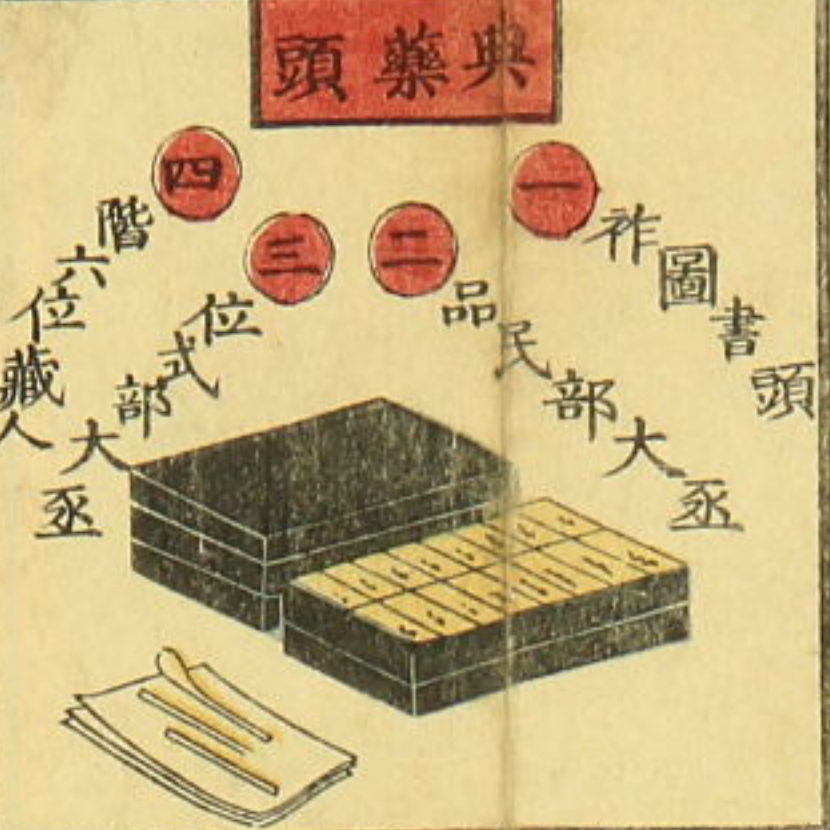 典藥頭
一 祚 圖書頭
二 品 民部大丞
三 位 式部大丞
四 階 六位藏人